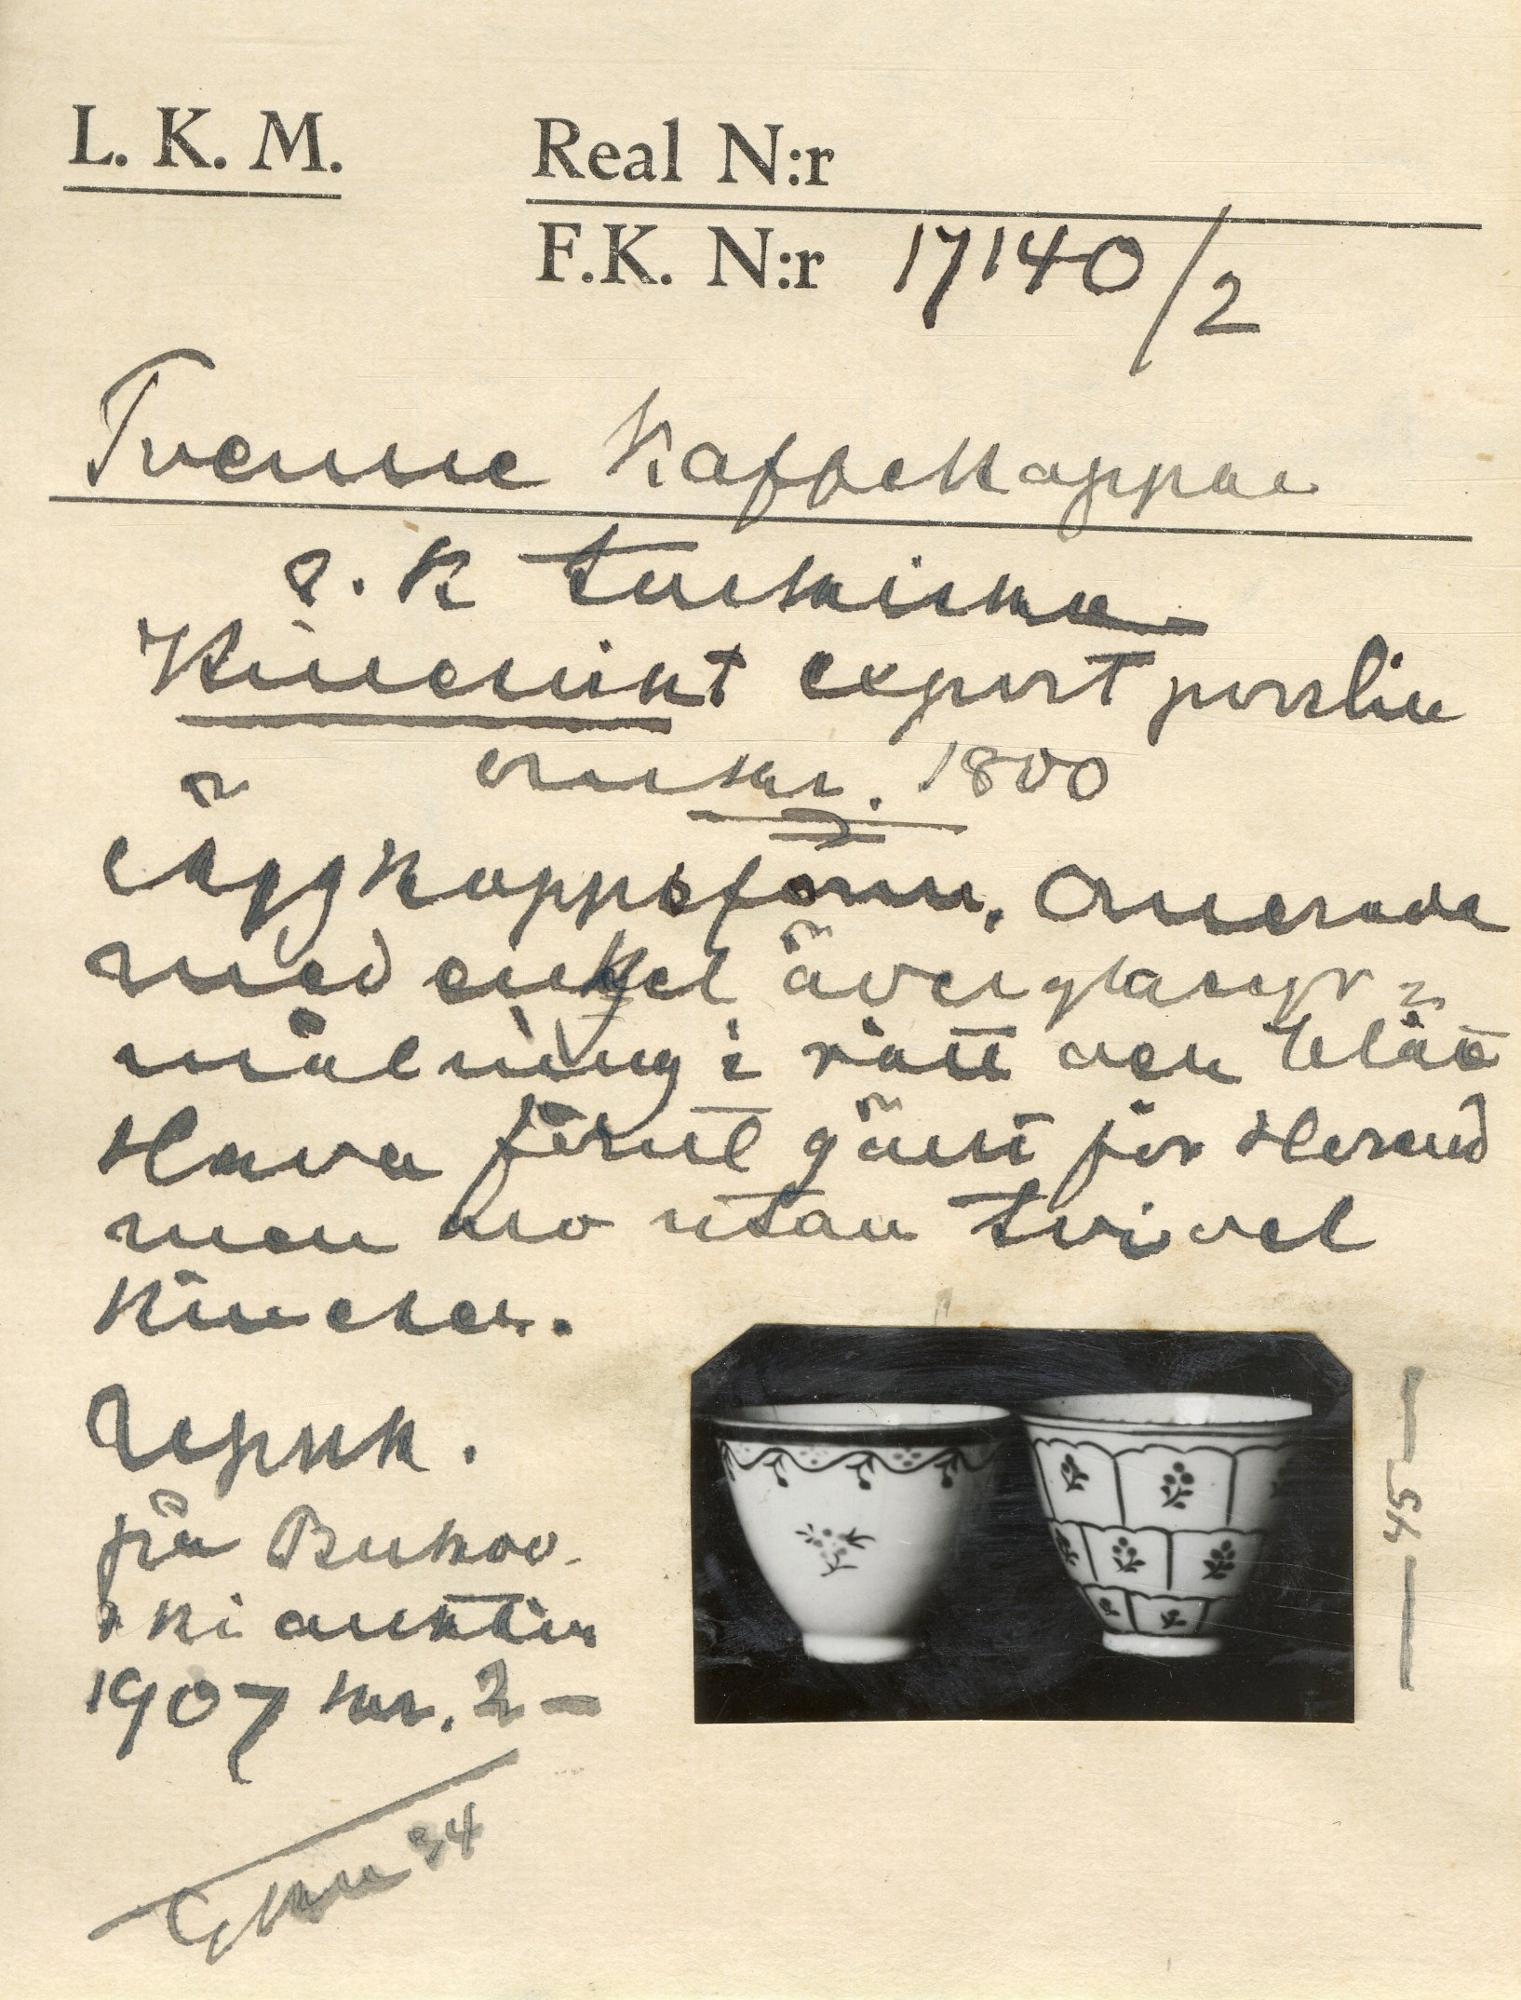 L. K. M. Real N:r
F.K. N:r 17140/2
Tvenne Kaffekoppar
s.k turkiska
Kinesiskt export porslin
omkr. 1800
äggkoppsform. Ornerade
med enkel överglasyr=
målning i rött och blått
Hava förut gällt för Herend
men äro utan tvivel
Kineser.
Uppk.
på Bukow-
ski auktion
1907 kr. 2 –
34
45